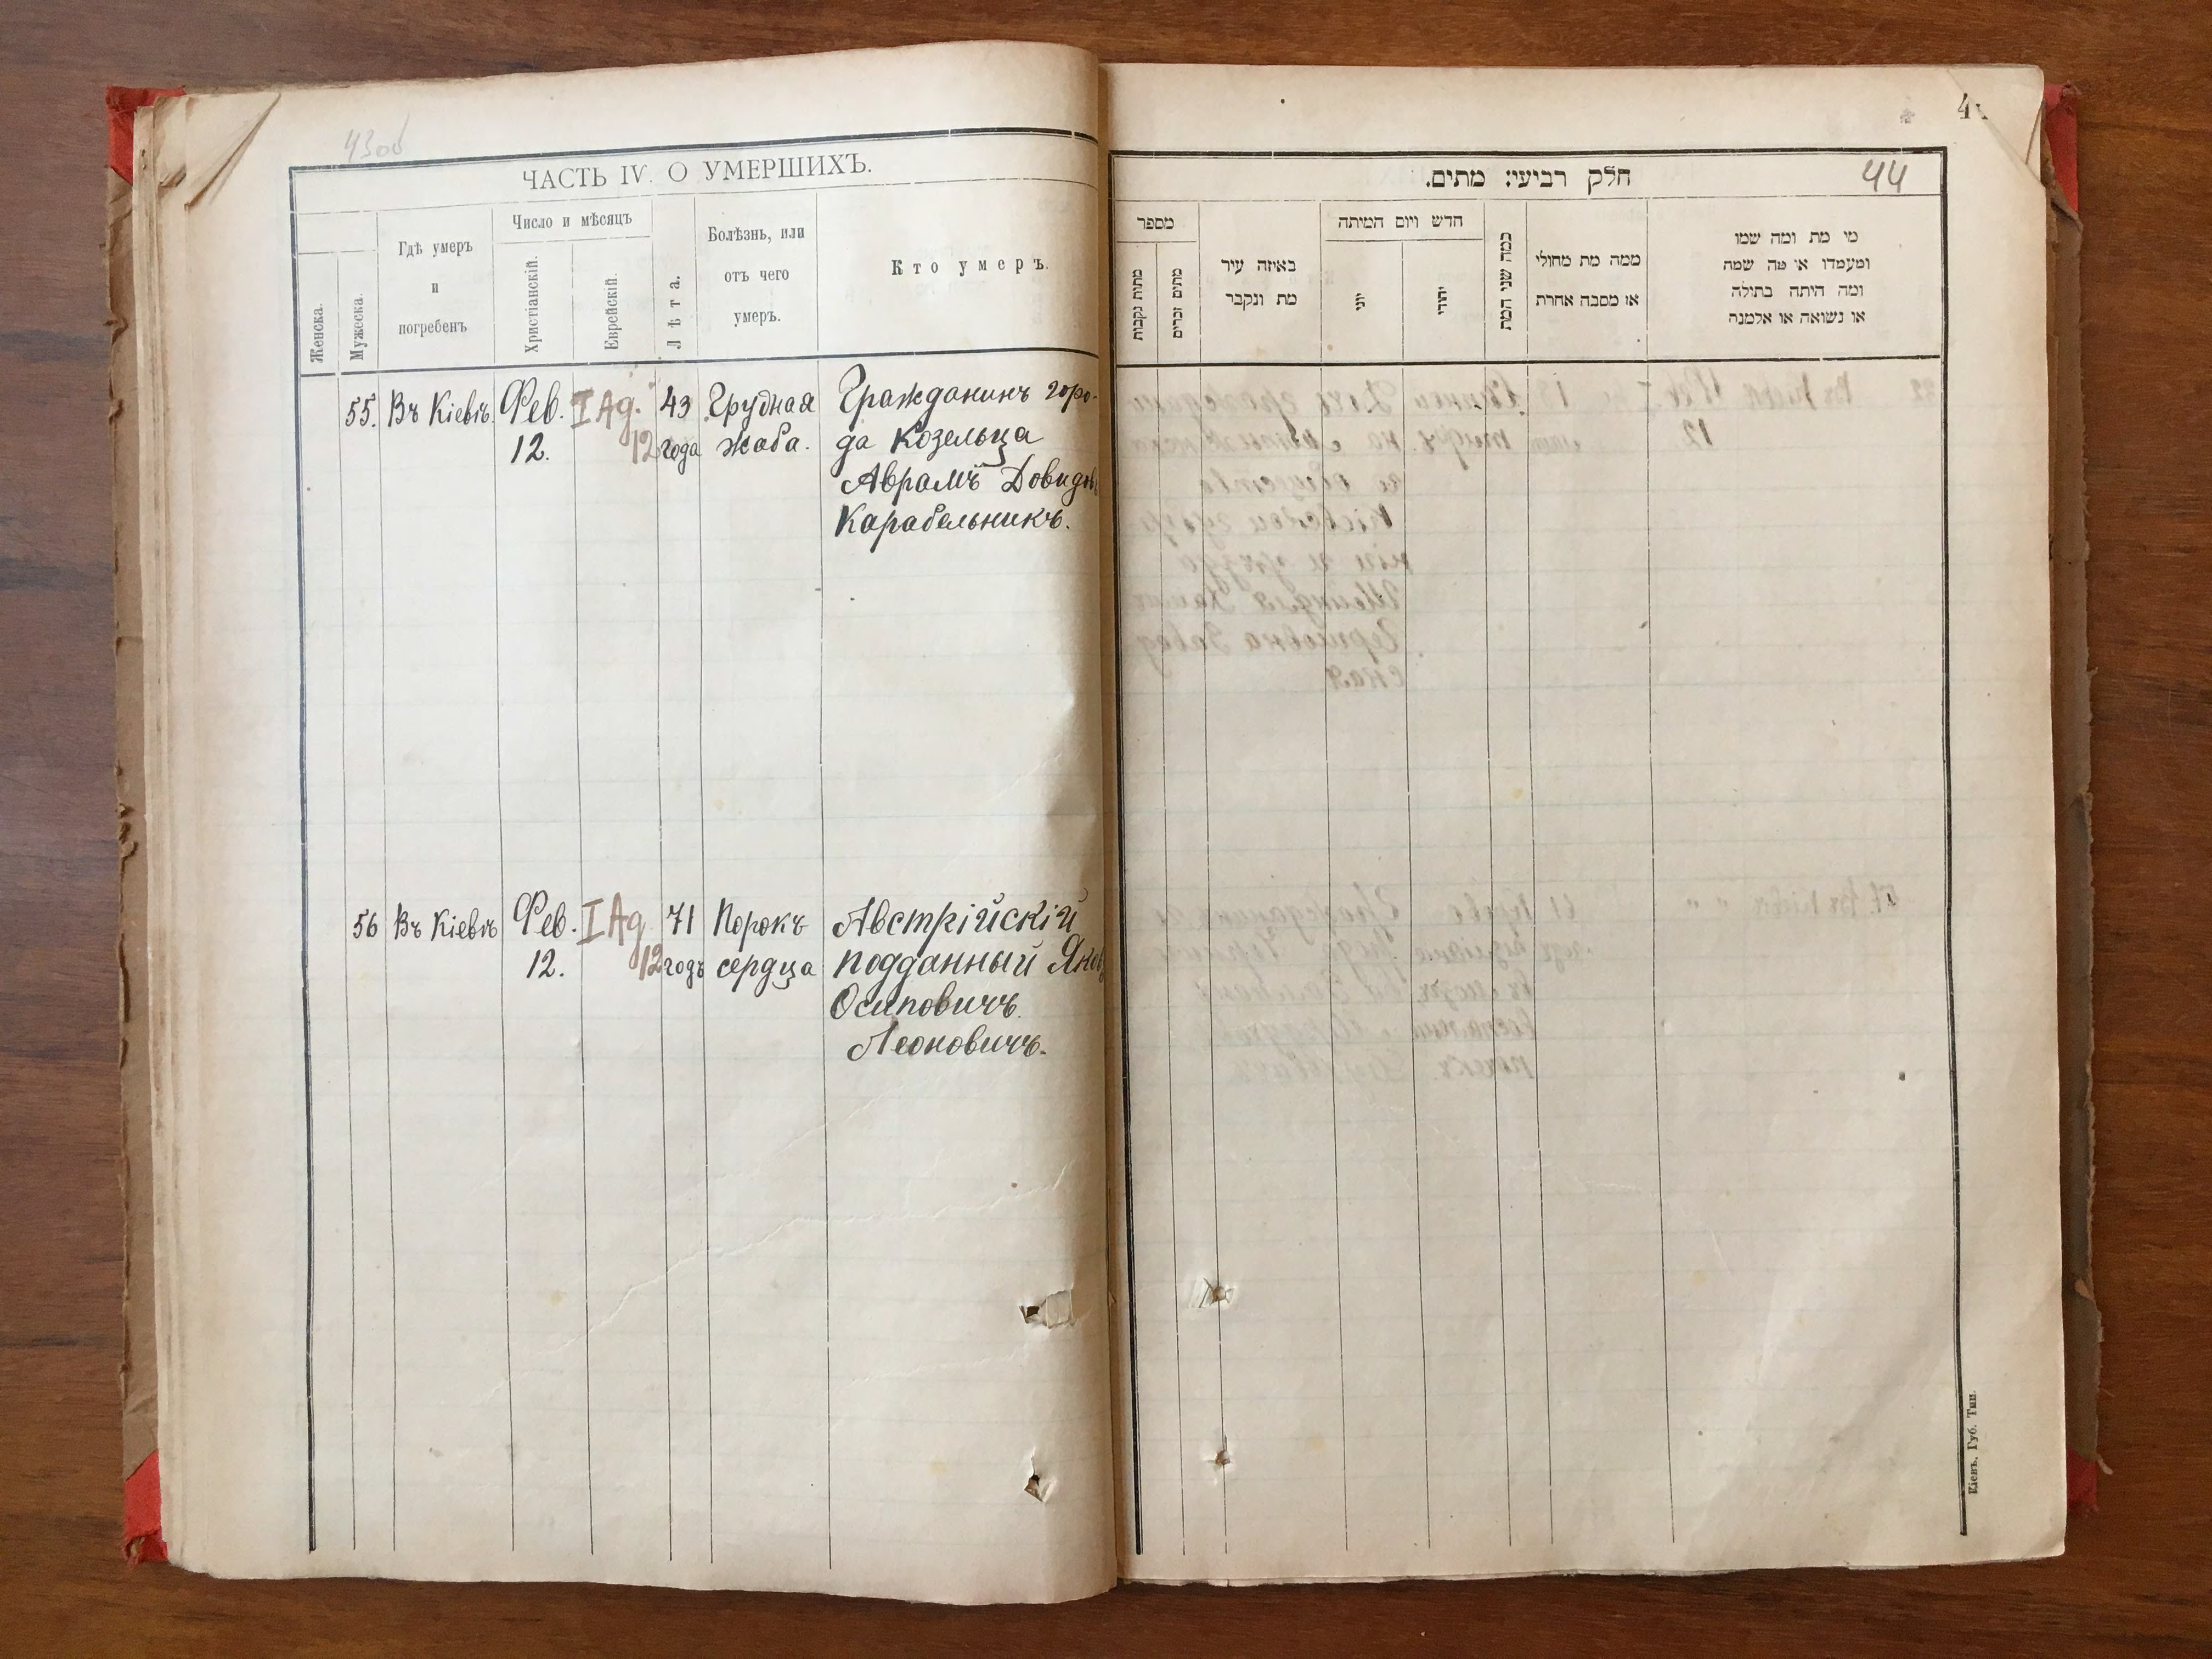 43об
ЧАСТЬ IV. О УМЕРШИХЪ.
Женска.
Мужеска.
Гдѣ умеръ
и
погребенъ
Число и мѣсяцъ
Христіанскій.
Еврейскій.
Лѣта.
Болѣзнь, или
отъ чего
умеръ.
Кто умеръ.
55. Въ Кіевѣ. Фев. I Ад. 43 Грудная Гражданинъ горо-
12. 12 года жаба. да Козельца
Аврамъ Довидовъ
Карабельникъ.
56 Въ Кіевѣ Фев. I Ад 71 Порокъ Австрійскій
12. 12 годъ сердца подданный Яковъ
Осиповичъ
Леоновичъ.
44
חלק רביעי: מתים.
מספר
מתות נקבות
מתים זכרים
באיזה עיר
מת ונקבר
חדש ויום המיתה
יוני
יהודי
כמה שני המת
ממה מת מחולי
או מסבה אחרת
מי מת ומה שמו
ומעמדו או מה שמה
ומה היתה בתולה
או נשואה או אלמנה
Кіевъ, Губ. Тип.